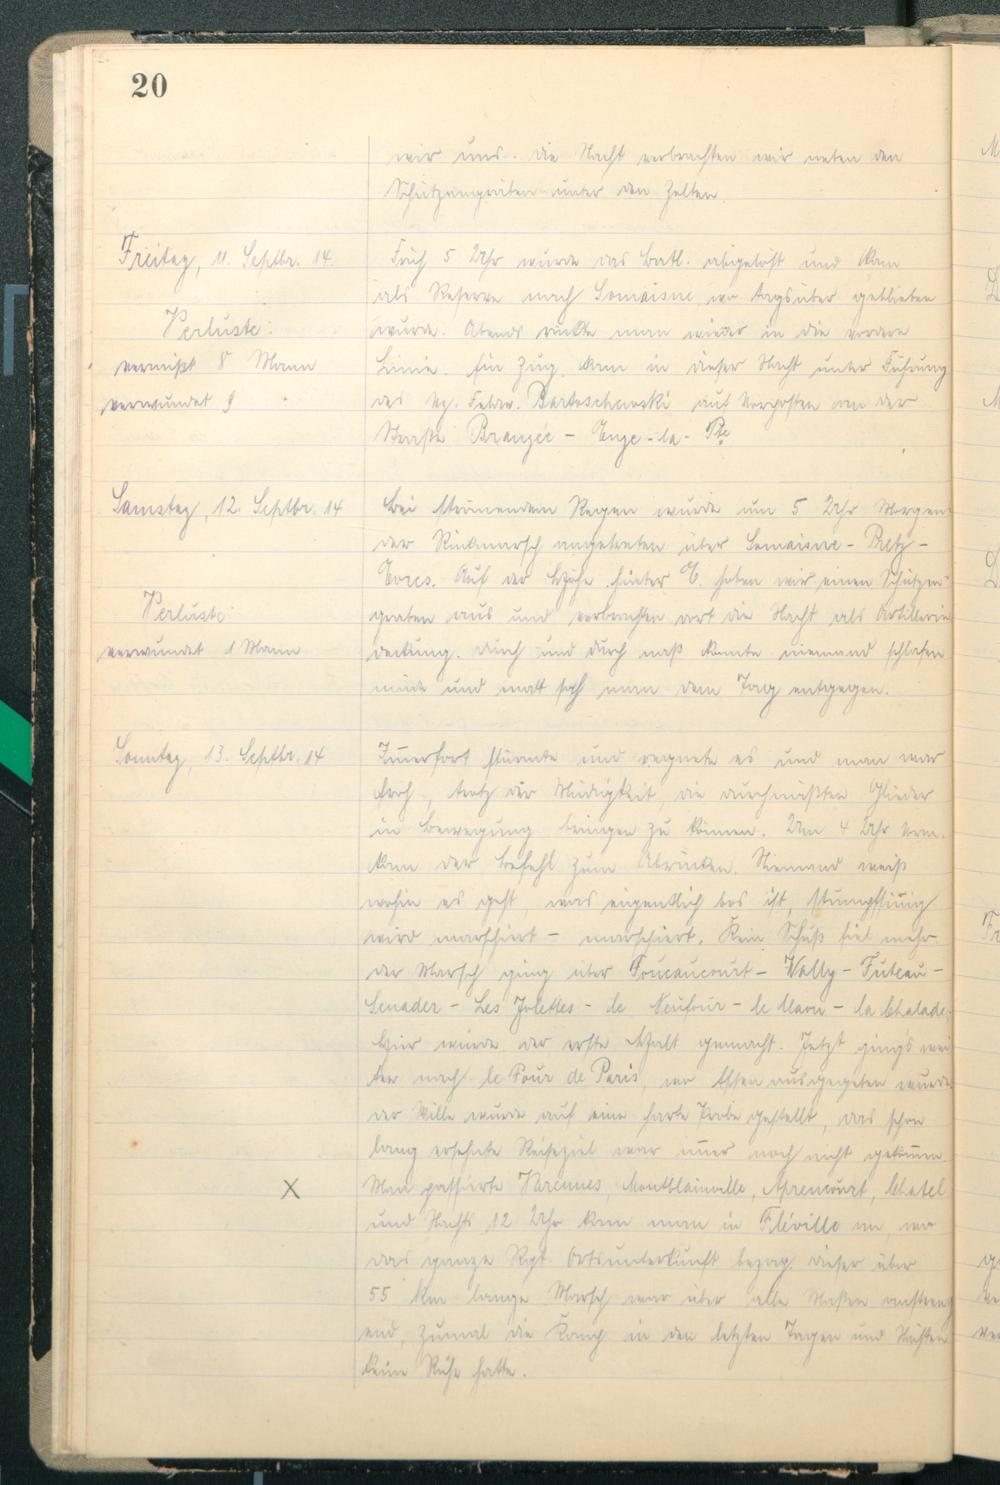 20
wir uns. Die Nacht verbrachten wir neben den
Schützengräben unter den Zelten.
Freitag, 11. Septbr. 14.
Früh 5 Uhr wurde das Batl. abgelöst und kam
als Reserve nach Somaisne wo tagsüber geblieben
Verluste:
wurde. Abends rückte man wieder in die vordere
vermißt 8 Mann
Linie. Ein Zug kam in dieser Nacht unter Führung
verwundet 9 "
des Vz. Feldw. Bartoschewski auf Vorposten an der
Straße Pranzée - Enge-la-Pte
Samstag, 12. Septbr. 14
Bei strömendem Regen wurde um 5 Uhr Morgens
der Rückmarsch angetreten über Somaisne - Pretz -
Evres. Auf der Höhe hinter E. hoben wir einen Schützen-
Verluste:
graben aus und verbrachten dort die Nacht als Artillerie
verwundet 1 Mann
deckung. Durch und durch naß konnte niemand schlafen
müde und matt sah man dem Tag entgegen.
Sonntag, 13. Septbr. 14
Im̅erfort stürmte und regnete es und man war
froh, trotz der Müdigkeit, die durchnäßten Glieder
in Bewegung bringen zu können. Um 4 Uhr Vorm.
kam der Befehl zum Abrücken. Niemand weiß
wohin es geht, was eigentlich los ist, stumpfsin̅ig
wird marschiert - marschiert. Kein Schuß fiel mehr.
Der Marsch ging über Foucaucourt - Wally - Futeau -
Senader - Les Jolettes - le Neufour - le Claon - la Chalade.
Hier wurde der erste Halt gemacht. Jetzt ging's wei
ter nach le Four de Paris, wo Essen ausgegeben wurde
der Wille wurde auf eine harte Probe gestellt, das schon
lang ersehnte Reiseziel war im̅er noch nicht gekom̅en.
X
Man passierte Varennes, Montblainville, Aprencourt, Chatel
und Nachts 12 Uhr kam man in Fléville an, wo
das ganze Rgt. Ortsunterkunft bezog. Dieser über
55 km lange Marsch war über alle Maßen anstreng
end, zumal die Komp. in den letzten Tagen und Nächten
keine Ruhe hatte.